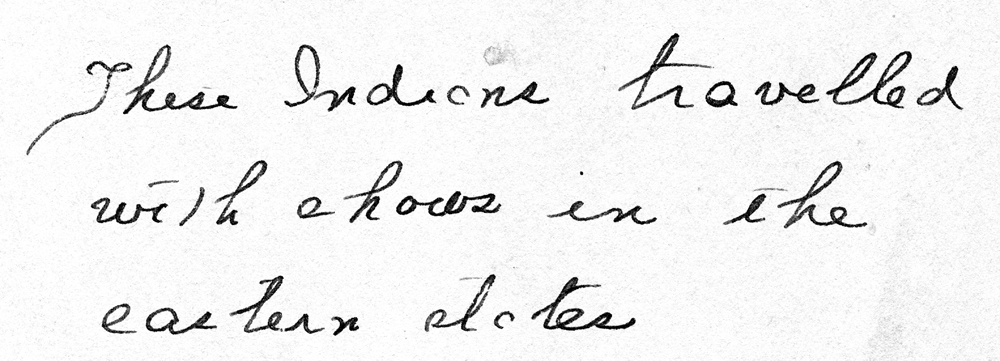 These Indians travelled
with shows in the
eastern states